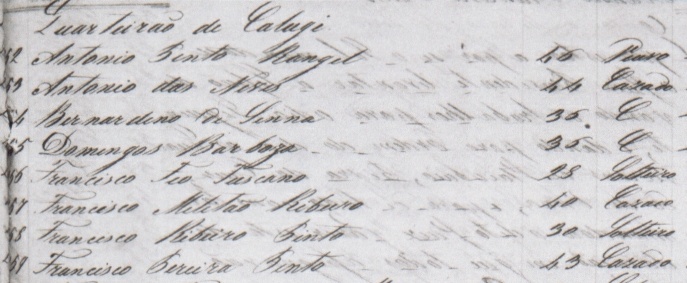 Quarteirão de Catugi
52 Antonio Pinto Rangel 46
53 Antonio das Neves 44 Cazado
54 Bernardino de Senna 35 C
55 Domingos Barboza 35 C
56 Francisco Feo Tuscano 28 Solteiro
57 Francisco Militão Ribeiro 40 Cazado
58 Francisco Ribeiro Pinto 30 Solteiro
59 Francisco Pereira Pinto 43 Cazado